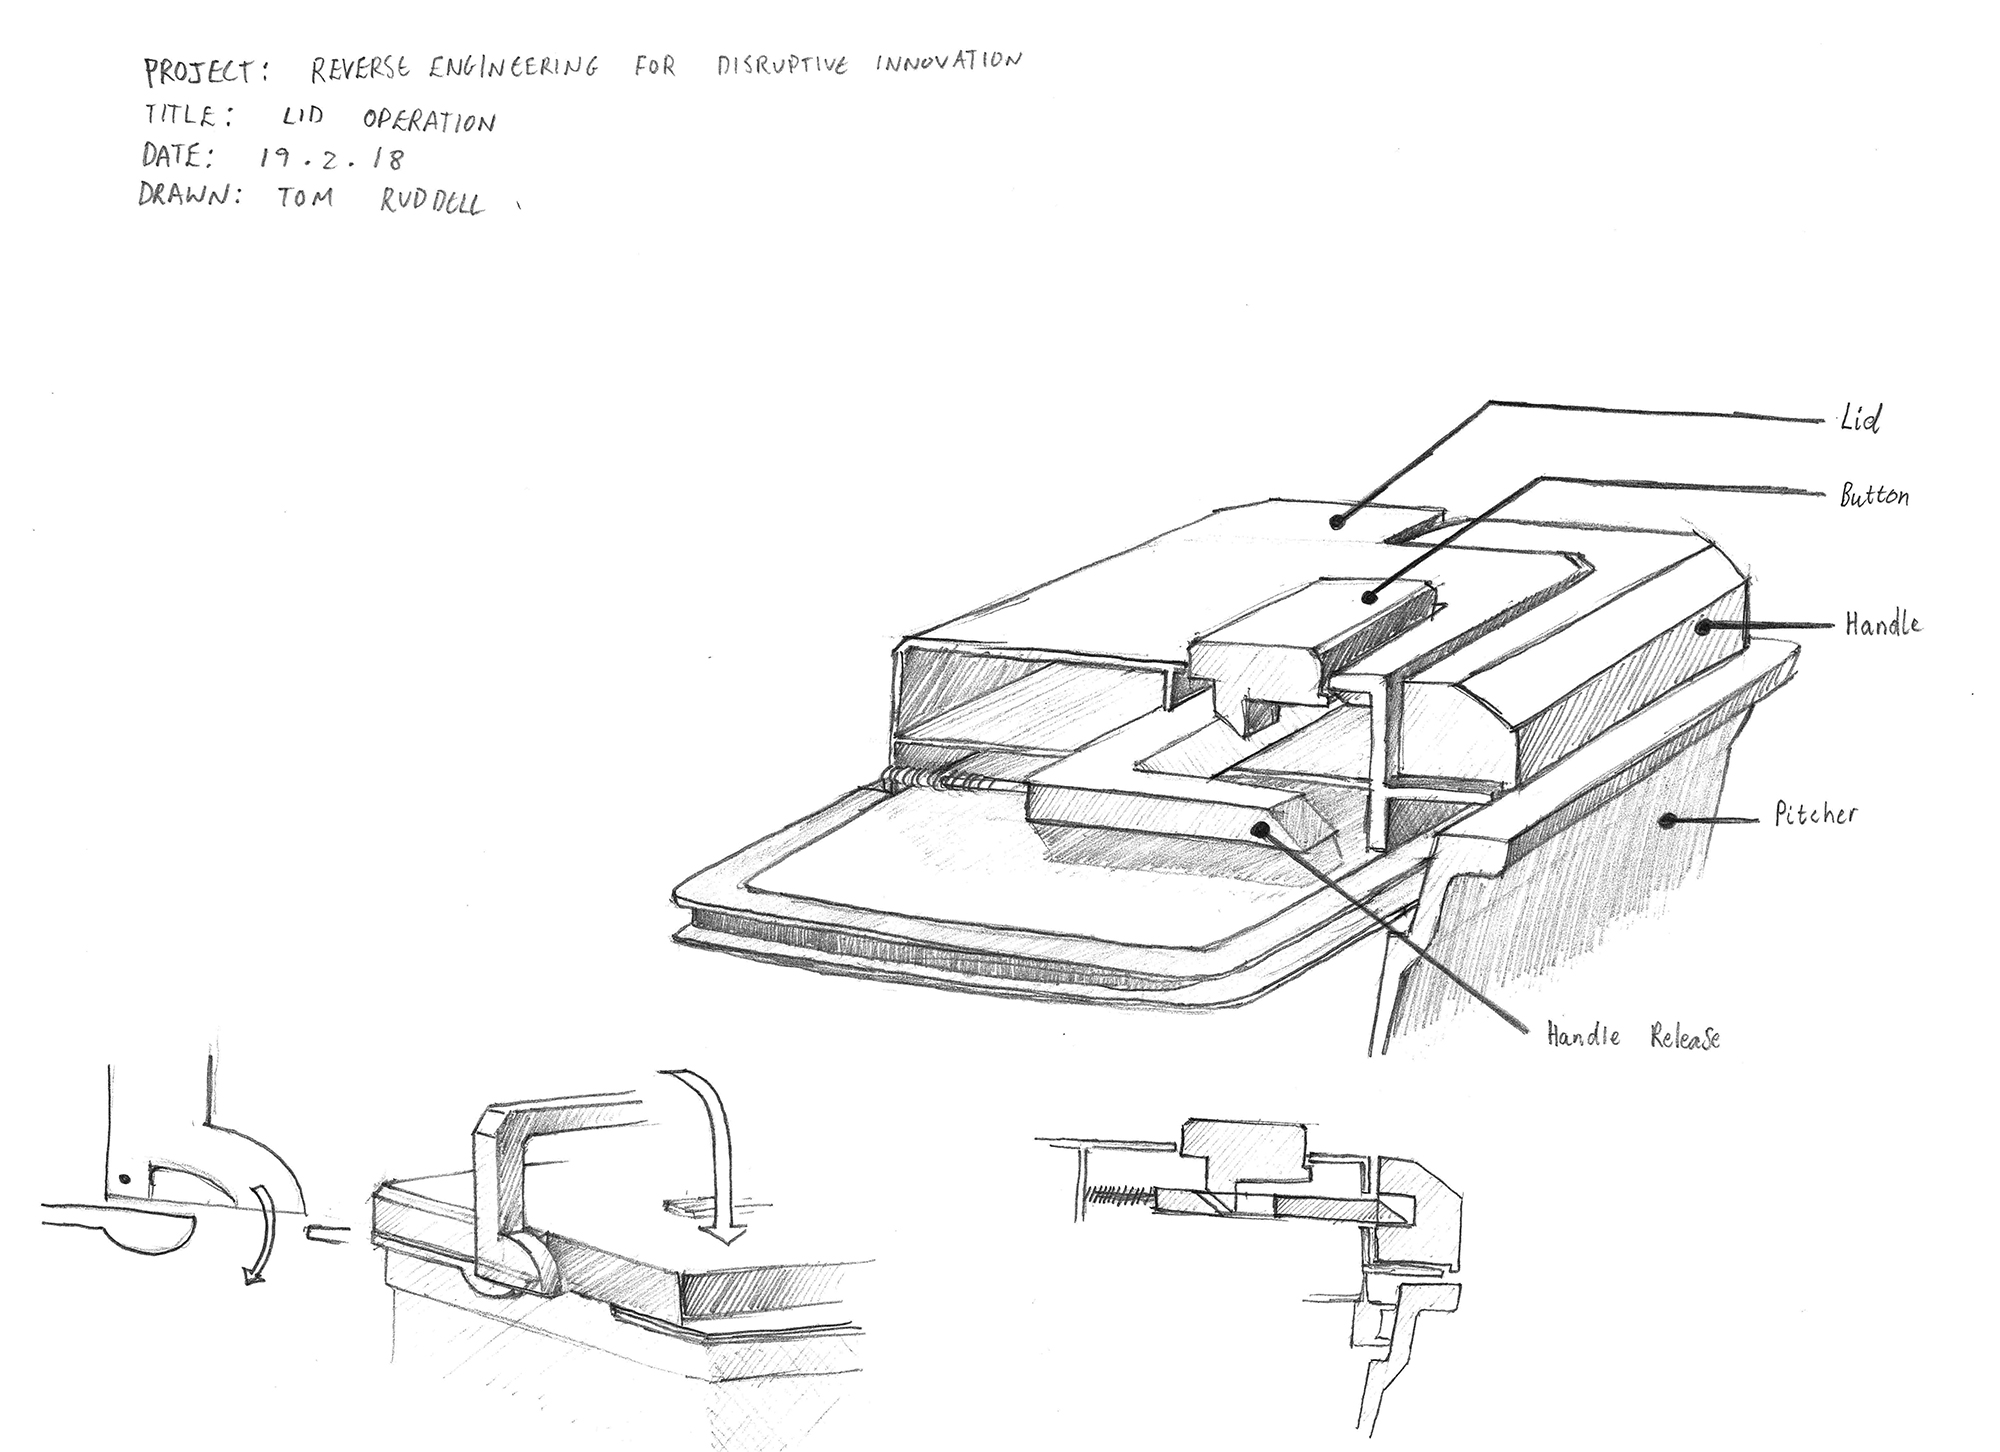 PROJECT: REVERSE ENGINEERING FOR DISRUPTIVE INNOVATION
TITLE: LID OPERATION
DATE: 19.2.18
DRAWN: TOM RUDDELL
Lid
Button
Handle
Pitcher
Handle Release